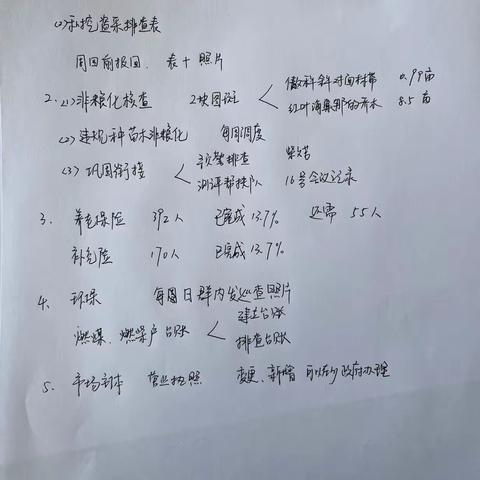 (1)私挖盗采排查表
周四前报回. 表+照片
2.(1)非粮化核查 2块图斑 斜对面村部 0.99亩
红叶 8.5亩
(2)违规种苗木非粮化 每周调度
(3)巩固衔接 排查
测评帮扶队 16号会议记录
3. 养老保险 392人 已完成13.7% 还需55人
补充险 170人 已完成13.7%
4. 环保 每周日群内发巡查照片
燃煤、燃柴户台账 建立台账
排查台账
5. 市场主体 营业执照 变更、新增 可以到政府办理